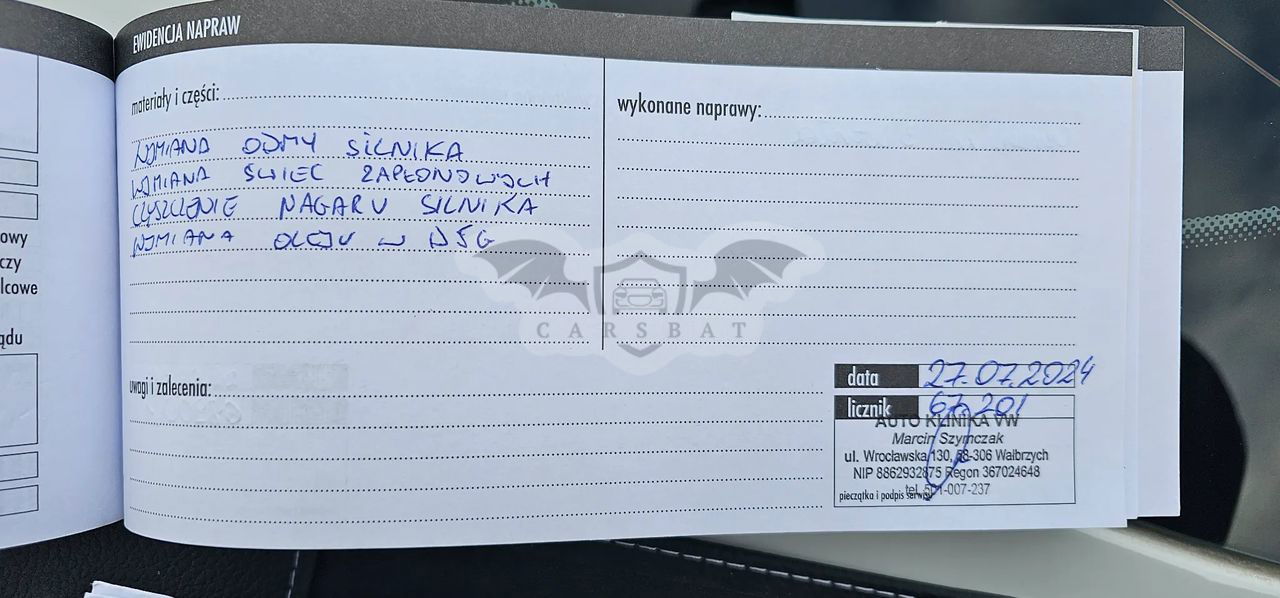 EWIDENCJA NAPRAW
materiały i części:
WYMIANA ODMY SILNIKA
WYMIANA ŚWIEC ZAPŁONOWYCH
CZYSZCZENIE NAGARU SILNIKA
WYMIANA OLEJU W DSG
wykonane naprawy:
CARSBAT
uwagi i zalecenia:
data 27.07.2024
licznik 67.201
AUTO KLINIKA VW
Marcin Szymczak
ul. Wrocławska 130, 58-306 Wałbrzych
NIP 8862932875 Regon 367024648
tel. 501-007-237
pieczątka i podpis serwisu
owy
czy
lcowe
ądu